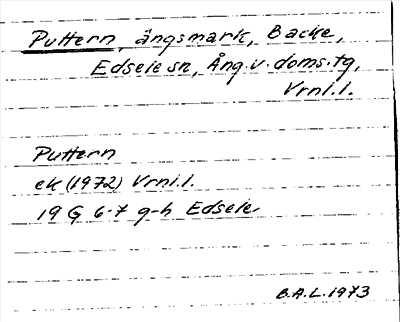 Puttern, ängsmark, Backe,
Edsele sn, Ång. v. doms. tg,
Vrnl. l.
Puttern
ek (1972) Vrnl. l.
19 G 6-7 g-h Edsele
B.A.L. 1973